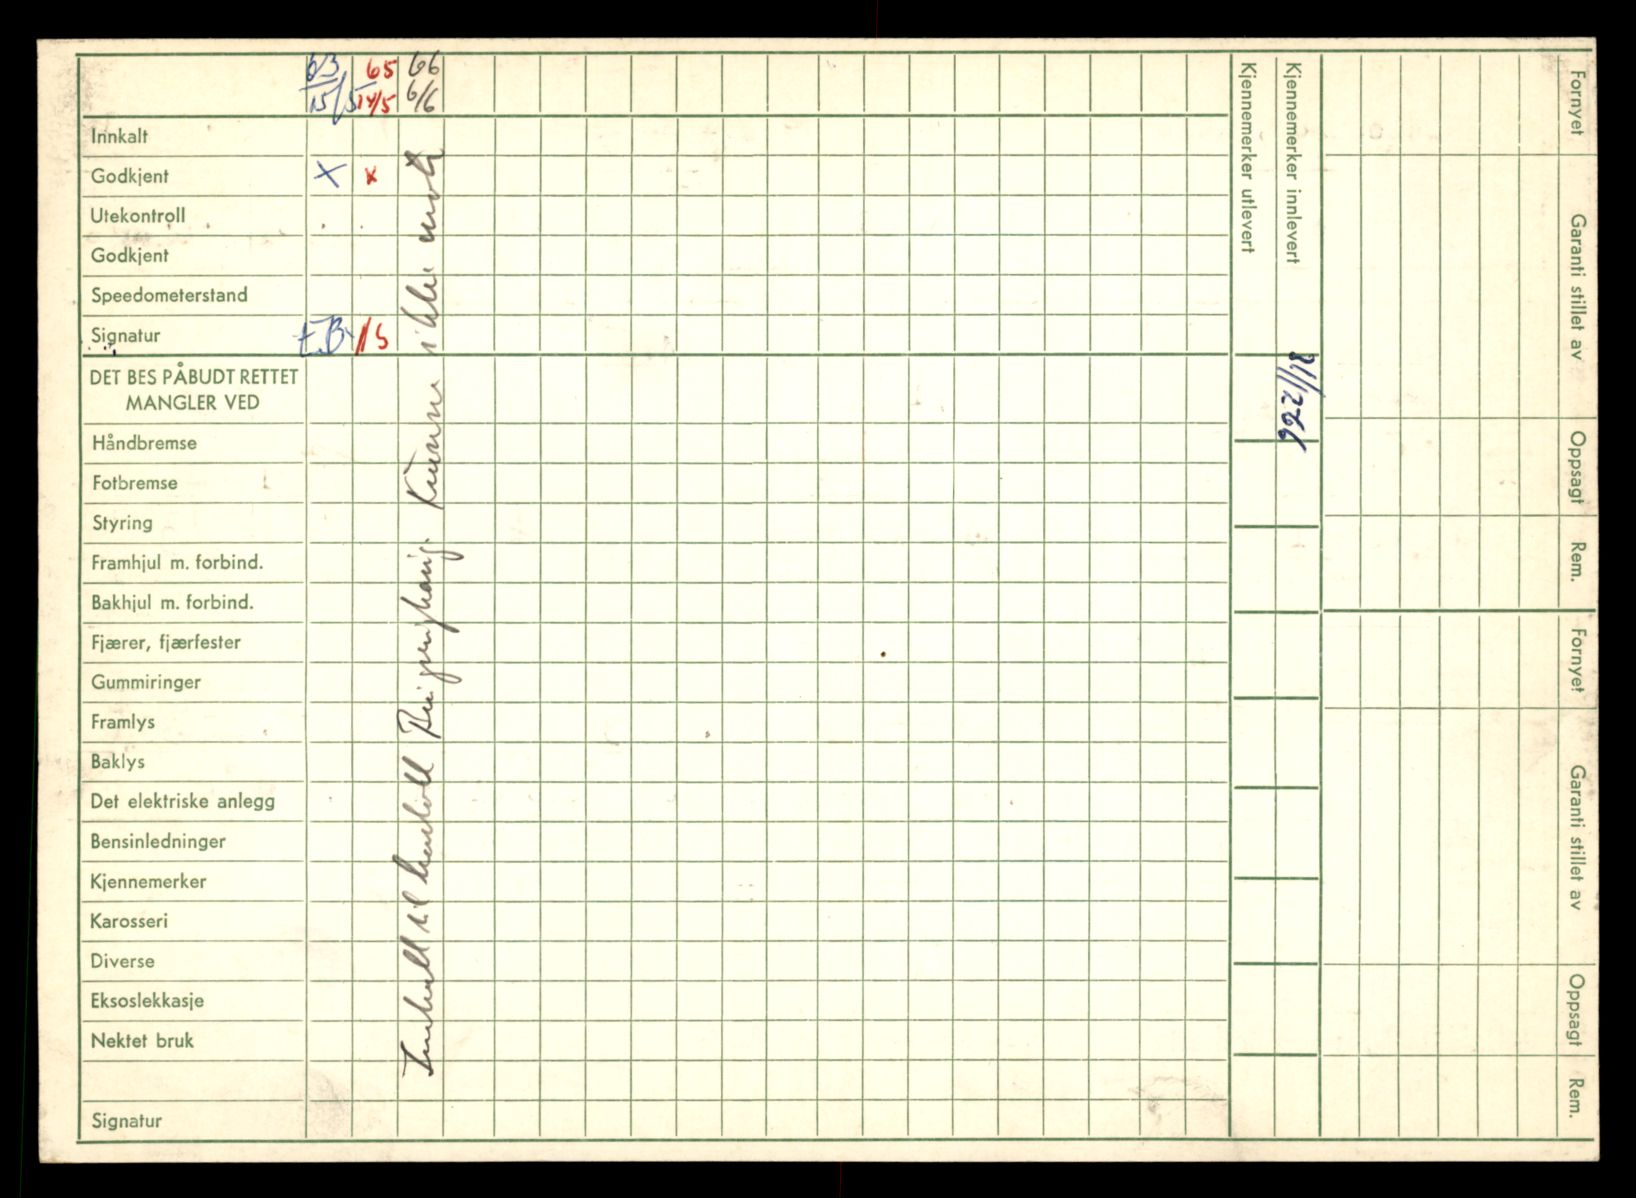 63 65 66
15/5 14/5 6/6
Innkalt
Godkjent X x
Utekontroll
Godkjent
Speedometerstand
Signatur
DET BES PÅBUDT RETTET
MANGLER VED
Håndbremse
Fotbremse
Styring
Framhjul m. forbind.
Bakhjul m. forbind.
Fjærer, fjærfester
Gummiringer
Framlys
Baklys
Det elektriske anlegg
Bensinledninger
Kjennemerker
Karosseri
Diverse
Eksoslekkasje
Nektet bruk
Signatur
Innkalt til kontroll Kunne ikke møte
Kjennemerker utlevert
Kjennemerker innlevert
Fornyet
Garanti stillet av
Oppsagt
Rem.
Fornyet
Garanti stillet av
Oppsagt
Rem.